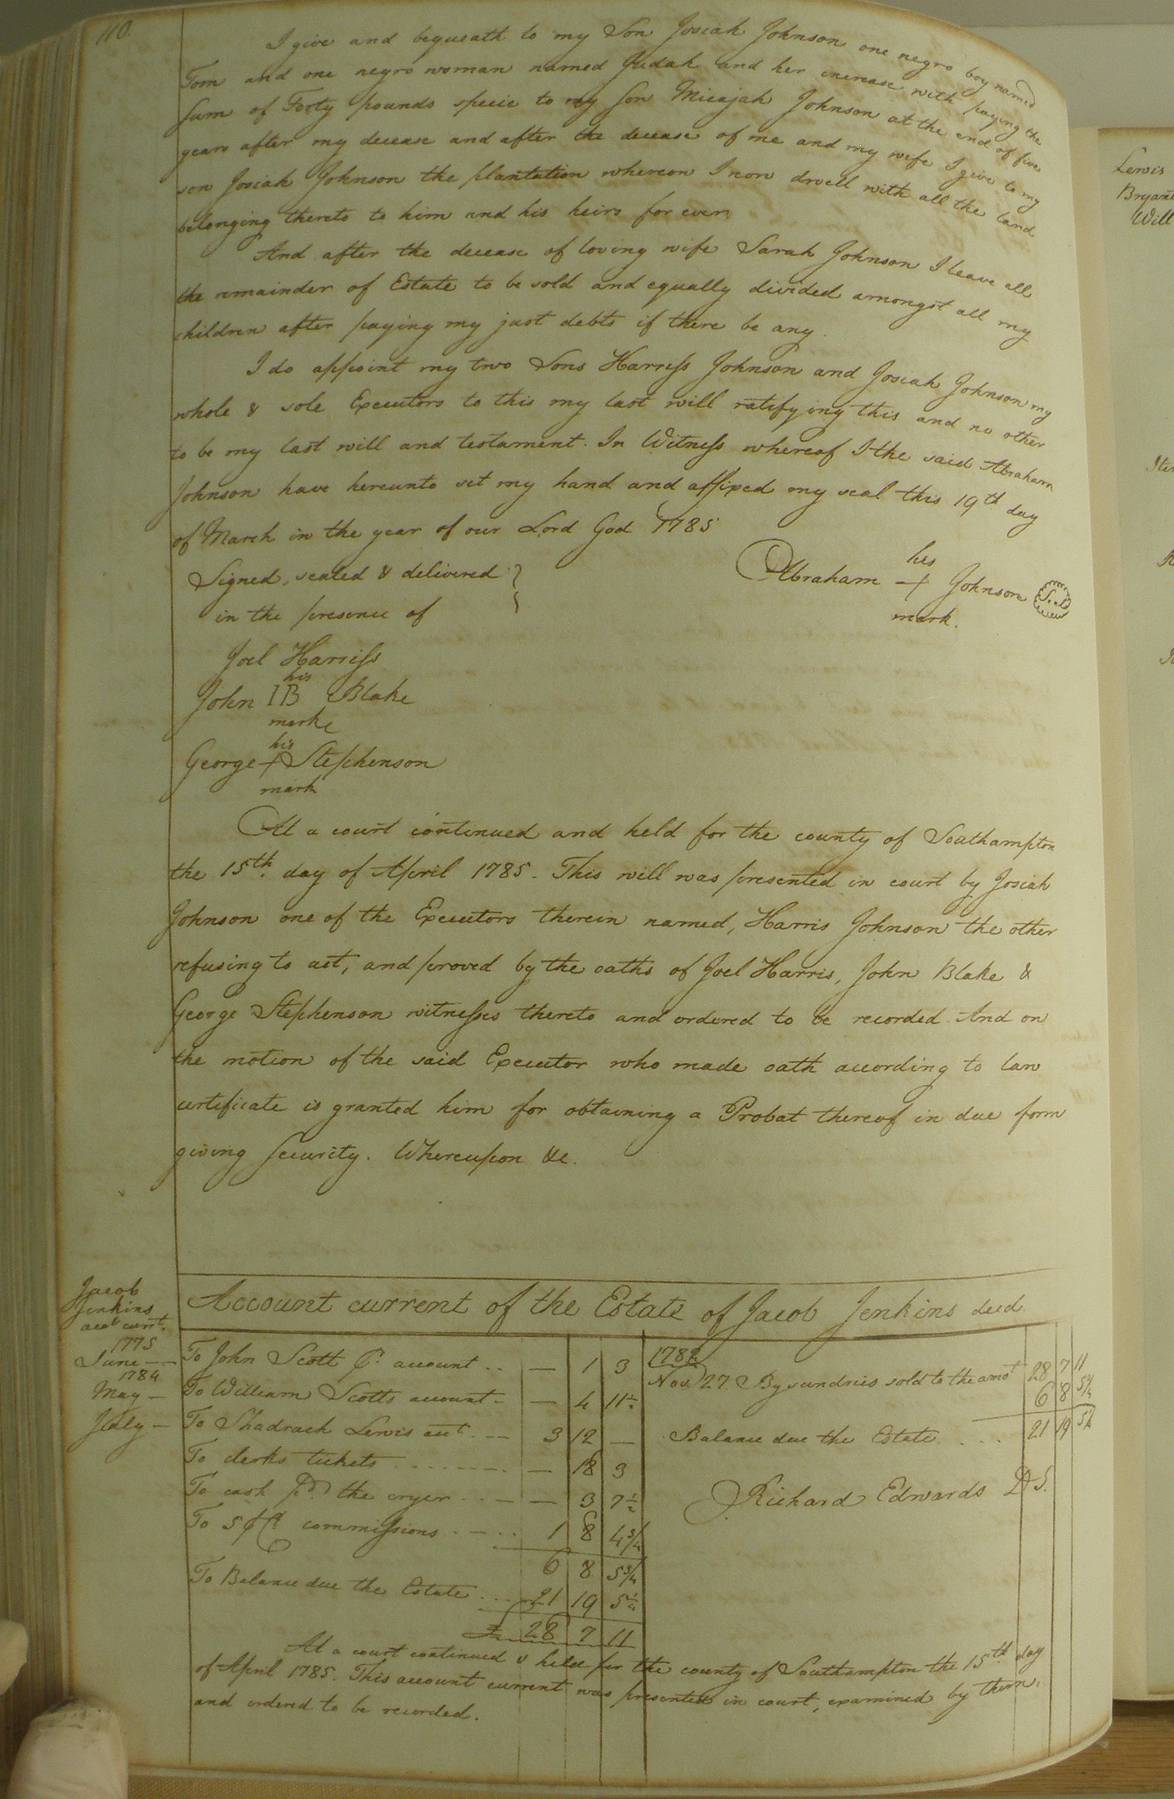 110.
I give and bequeath to my Son Josiah Johnson one negro boy named
Tom and one negro woman named Judah and her increase with paying the
sum of Forty pounds specie to my son Micajah Johnson at the end of five
years after my decease and after the decease of me and my wife I give to my
son Josiah Johnson the plantation whereon I now dwell with all the land
belonging thereto to him and his heirs for ever
And after the decease of loving wife Sarah Johnson I leave all
the remainder of Estate to be sold and equally divided amongst all my
children after paying my just debts if there be any.
I do appoint my two Sons Harriss Johnson and Josiah Johnson my
whole & sole Executors to this my last will ratifying this and no other
to be my last will and testament. In Witness whereof I the said Abraham
Johnson have hereunto set my hand and affixed my seal this 19th day
of March in the year of our Lord God 1785
Signed, sealed & delivered }
in the presence of
his
Abraham + Johnson Seal
mark.
Joel Harriss
his
John IB Blake
mark
his
George + Stephenson
mark
At a court continued and held for the county of Southampton
the 15th. day of April 1785. This will was presented in court by Josiah
Johnson one of the Executors therein named, Harris Johnson the other
refusing to act, and proved by the oaths of Joel Harris, John Blake &
George Stephenson witnesses thereto and ordered to be recorded. And on
the motion of the said Executor who made oath according to law
certificate is granted him for obtaining a Probat thereof in due form
giving security. Whereupon &c.
Jacob
Jenkins
acct currt.
Account current of the Estate of Jacob Jenkins decd.
1775
June — To John Scott pr. account .. — 1 3
1784
May — To William Scotts account — — 4 11½
July — To Shadrach Lewis acct. — 3 12 —
To clerks tickets ........ — 18 3
To cash pd. the cryer .. — — 3 7½
To 5 pCt commissions . — .. 1 8 4¾
6 8 5¾
To Balance due the Estate ... 21 19 5¼
£ 28 7 11
Novr 27 By sundries sold to the amot 28 7 11
6 8 5¾
Balance due the Estate .... 21 19 5¼
Richard Edwards D S.
At a court continued & held for the county of Southampton the 15th day
of April 1785. This account current was presented in court, examined by them,
and ordered to be recorded.
Lewis
Will